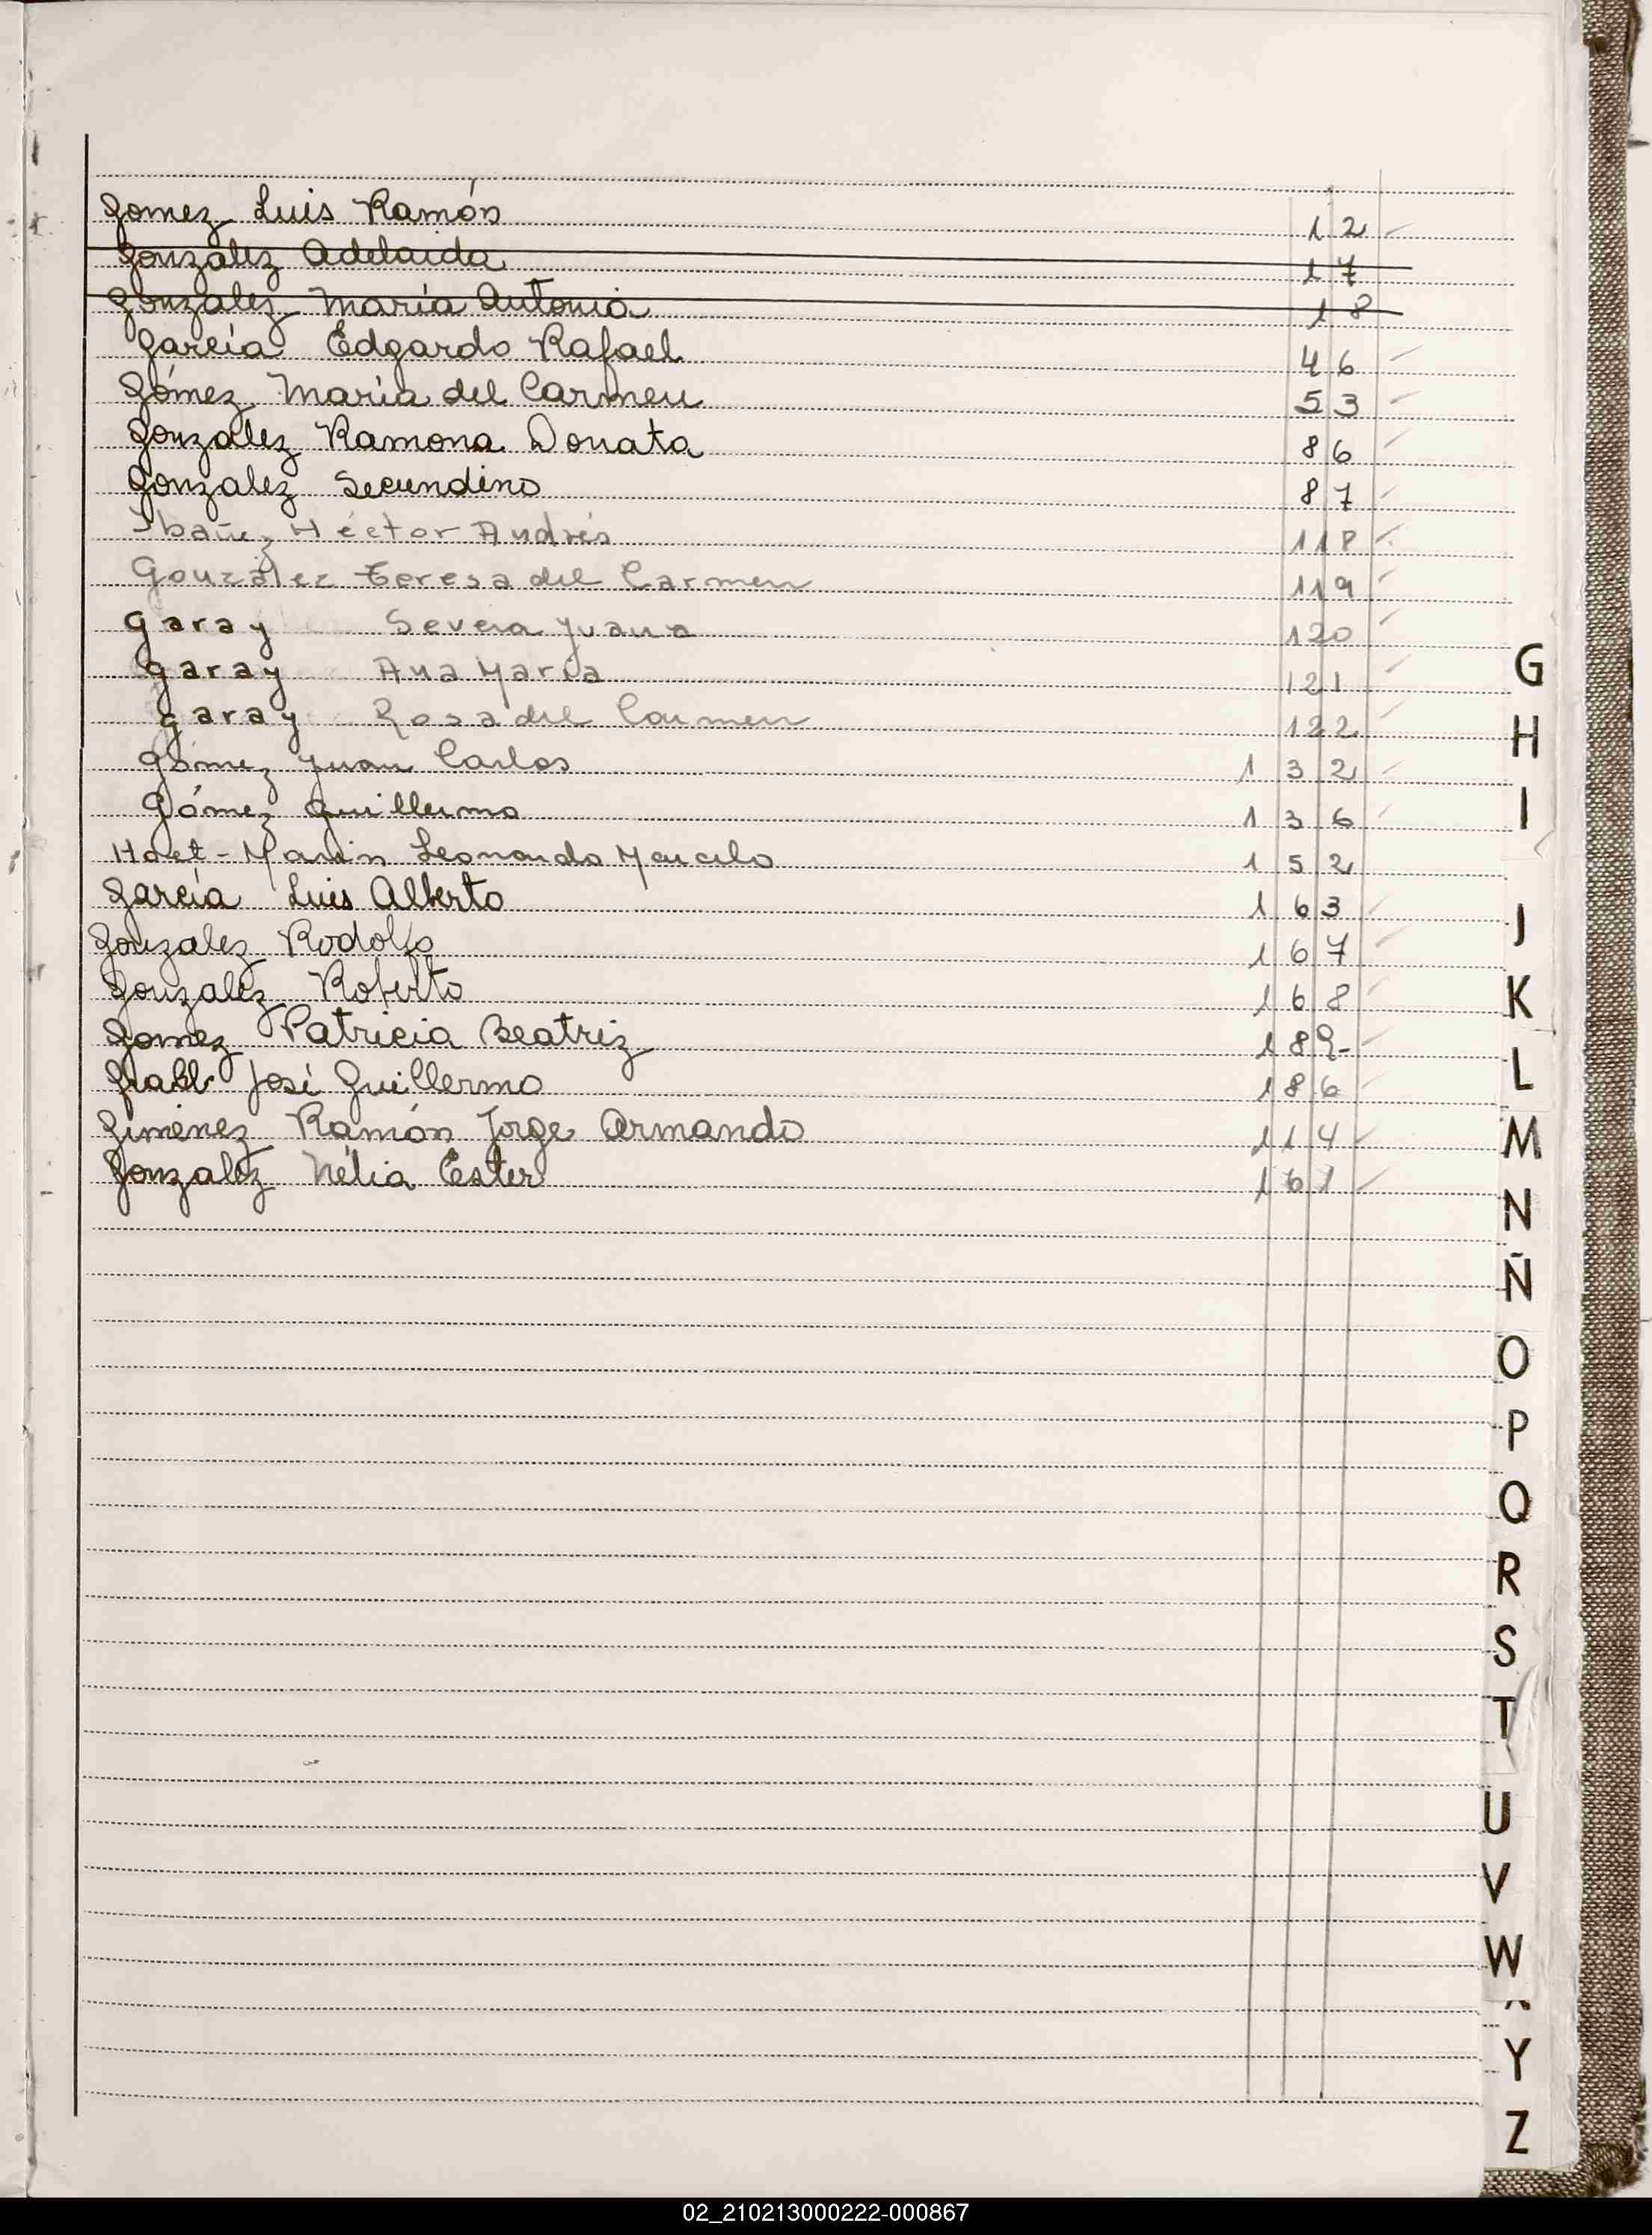 Gomez Luis Ramón 12
González Adelaida 17
Gonzalez María Antonia 18
García Edgardo Rafael 46
Gómez María del Carmen 53
González Ramona Donata 86
Gonzalez Secundino 87
Ibañez Héctor Andrés 118
González Teresa del Carmen 119
Garay Severa Juana 120
Garay Ana María 121
Garay Rosa del Carmen 122
Gómez Juan Carlos 132
Gómez Guillermo 136
Leonardo Marcelo 152
García Luis Alberto 163
Gonzalez Rodolfo 167
Gonzalez Roberto 168
Gomez Patricia Beatriz
José Guillermo 186
Gimenez Ramón Jorge Armando 114
Gonzalez Nélia Ester 161
G
H
I
J
K
L
M
N
Ñ
O
P
Q
R
S
T
U
V
W
Y
Z
02_210213000222-000867